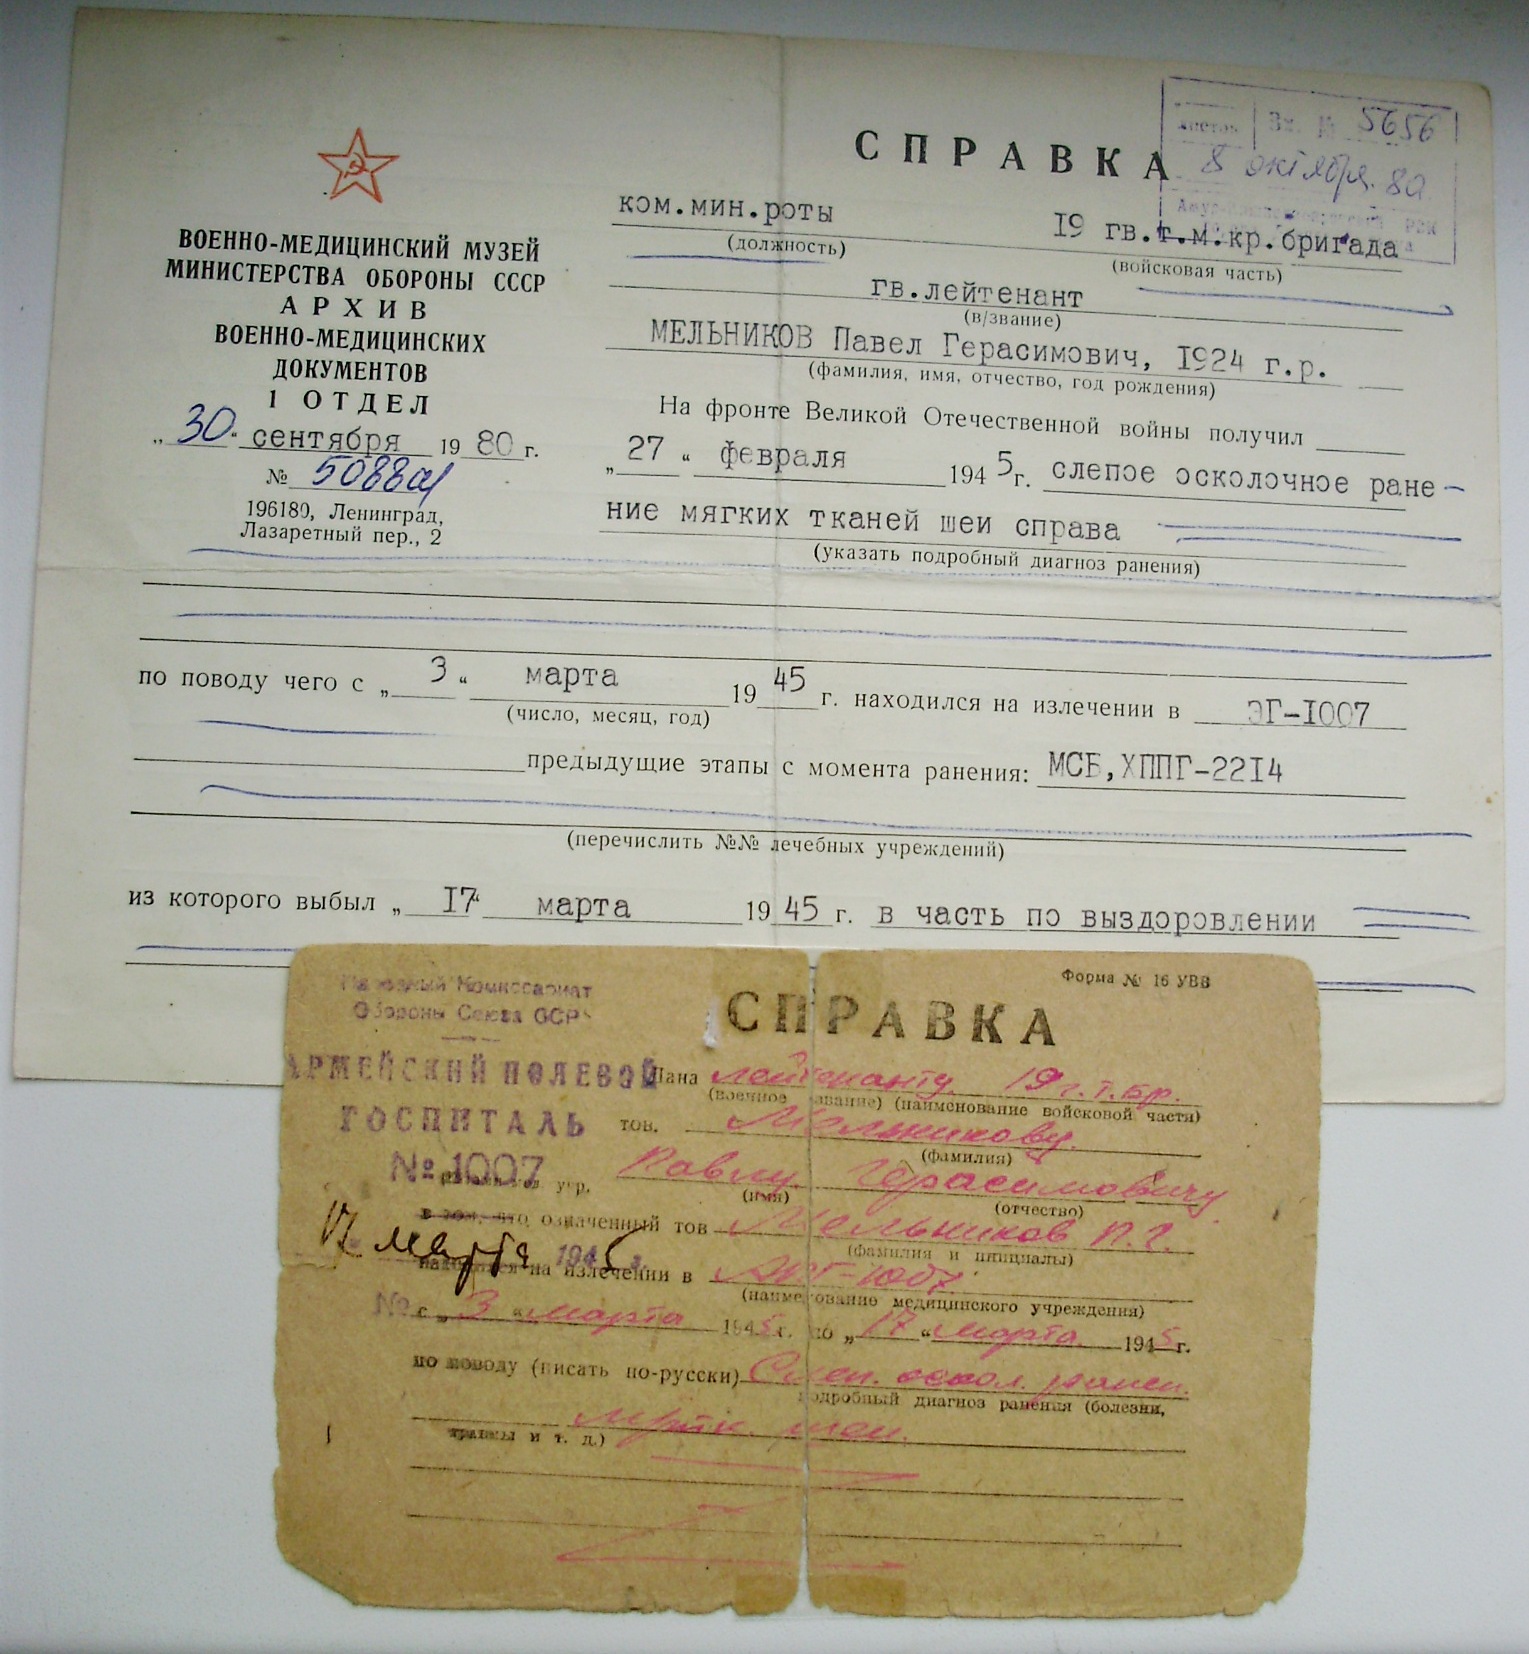 СПРАВКА
Вх. № 5656
8 октября. 80
ВОЕННО-МЕДИЦИНСКИЙ МУЗЕЙ
МИНИСТЕРСТВА ОБОРОНЫ СССР
АРХИВ
ВОЕННО-МЕДИЦИНСКИХ
ДОКУМЕНТОВ
1 ОТДЕЛ
„30“ сентября 1980 г.
№ 5088
196180, Ленинград,
Лазаретный пер., 2
ком.мин.роты 19 гв.т.м.кр.бригада
(должность) (войсковая часть)
гв.лейтенант
(в/звание)
МЕЛЬНИКОВ Павел Герасимович, 1924 г.р.
(фамилия, имя, отчество, год рождения)
На фронте Великой Отечественной войны получил
„27“ февраля 1945г. слепое осколочное ране-
ние мягких тканей шеи справа
(указать подробный диагноз ранения)
по поводу чего с „3“ марта 1945 г. находился на излечении в ЭГ-1007
(число, месяц, год)
предыдущие этапы с момента ранения: МСБ,ХППГ-2214
(перечислить №№ лечебных учреждений)
из которого выбыл „17“ марта 1945 г. в часть по выздоровлении
Форма № 16 УВВ
Народный Комиссариат
Обороны Союза ССР
АРМЕЙСКИЙ ПОЛЕВОЙ
ГОСПИТАЛЬ
№ 1007
17 марта 1945 г.
№
СПРАВКА
Дана лейтенанту 19 г.т.бр.
(военное звание) (наименование войсковой части)
тов. Мельникову
(фамилия)
Павлу Герасимовичу
(имя) (отчество)
в том, что означенный тов Мельников П.Г.
(фамилия и инициалы)
находился на излечении в 1007
(наименование медицинского учреждения)
с „3“ марта 1945г. по „17“ марта 1945г.
по поводу (писать по-русски) Слеп. оскол. ранен.
подробный диагноз ранения (болезни,
шеи.
травмы и т. д.)